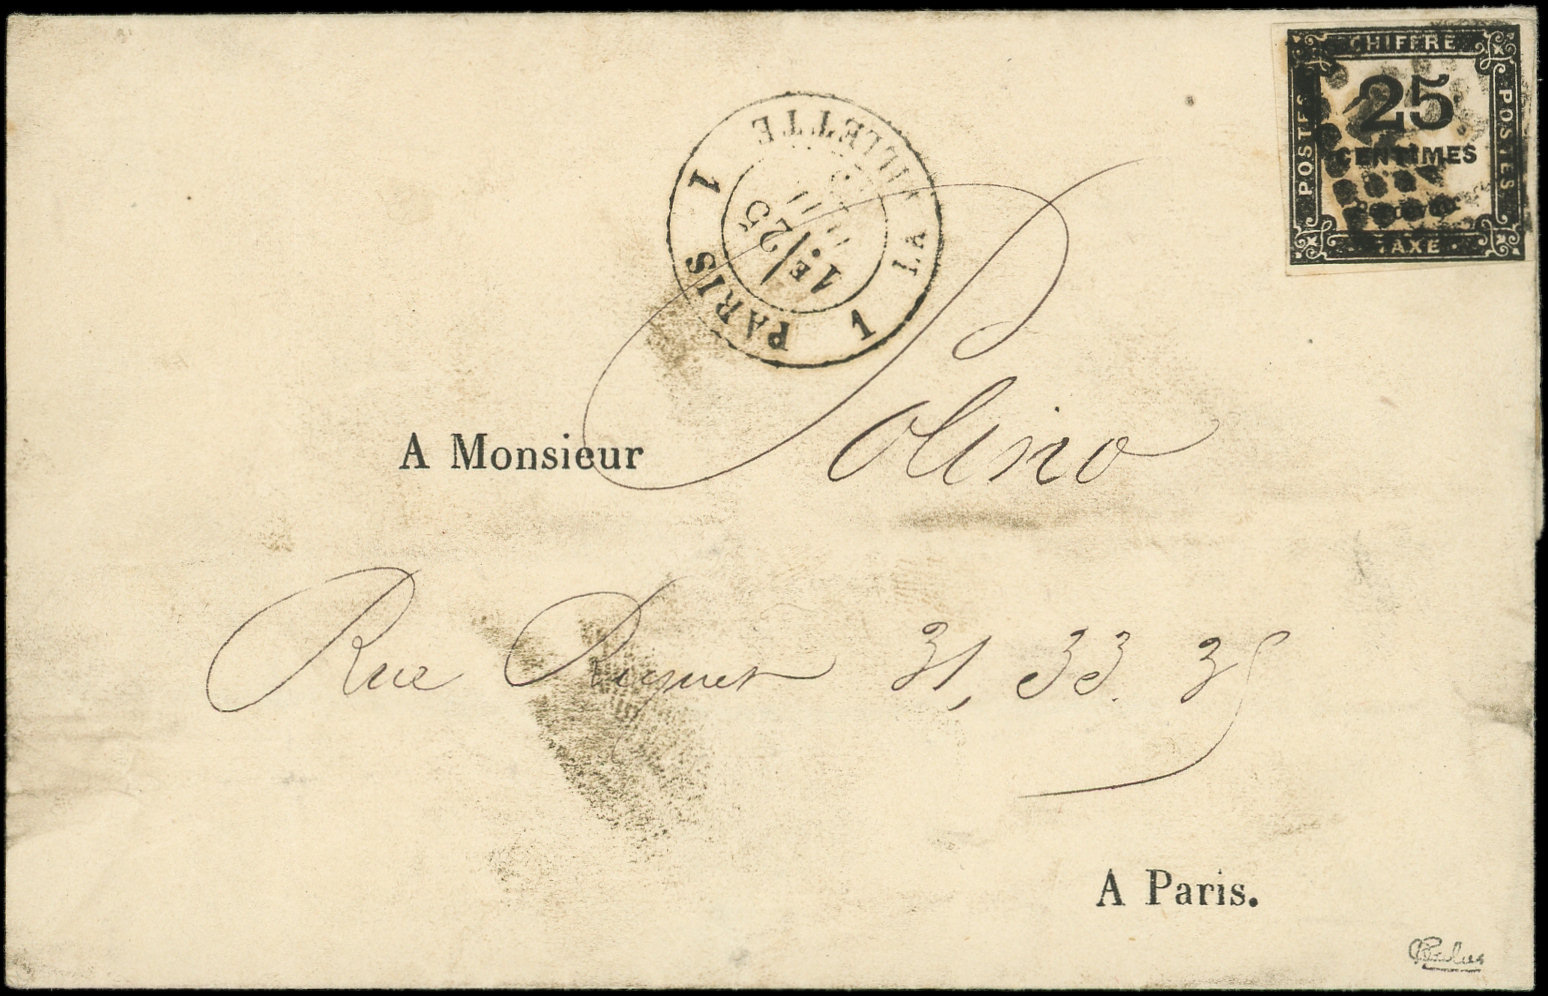 CHIFFRE
POSTES
25
CENTIMES
à percevoir
POSTES
TAXE
PARIS 1 LA VILLETTE 1
1E/25
A Monsieur Polino
Rue Riquet 31, 33. 35
A Paris.